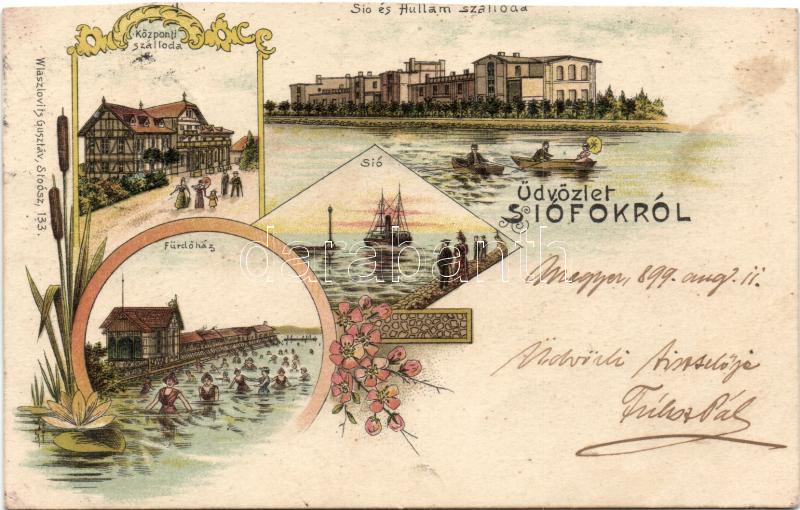 Sió és Hullám szálloda
Központi
szálloda
Wlaszlovits Gusztáv, Siófok, 133.
Sió
Üdvözlet
SIÓFOKRÓL
Fürdőház
darabanth
Megyer, 899. aug. 11.
Üdvözli tisztelője
Pál